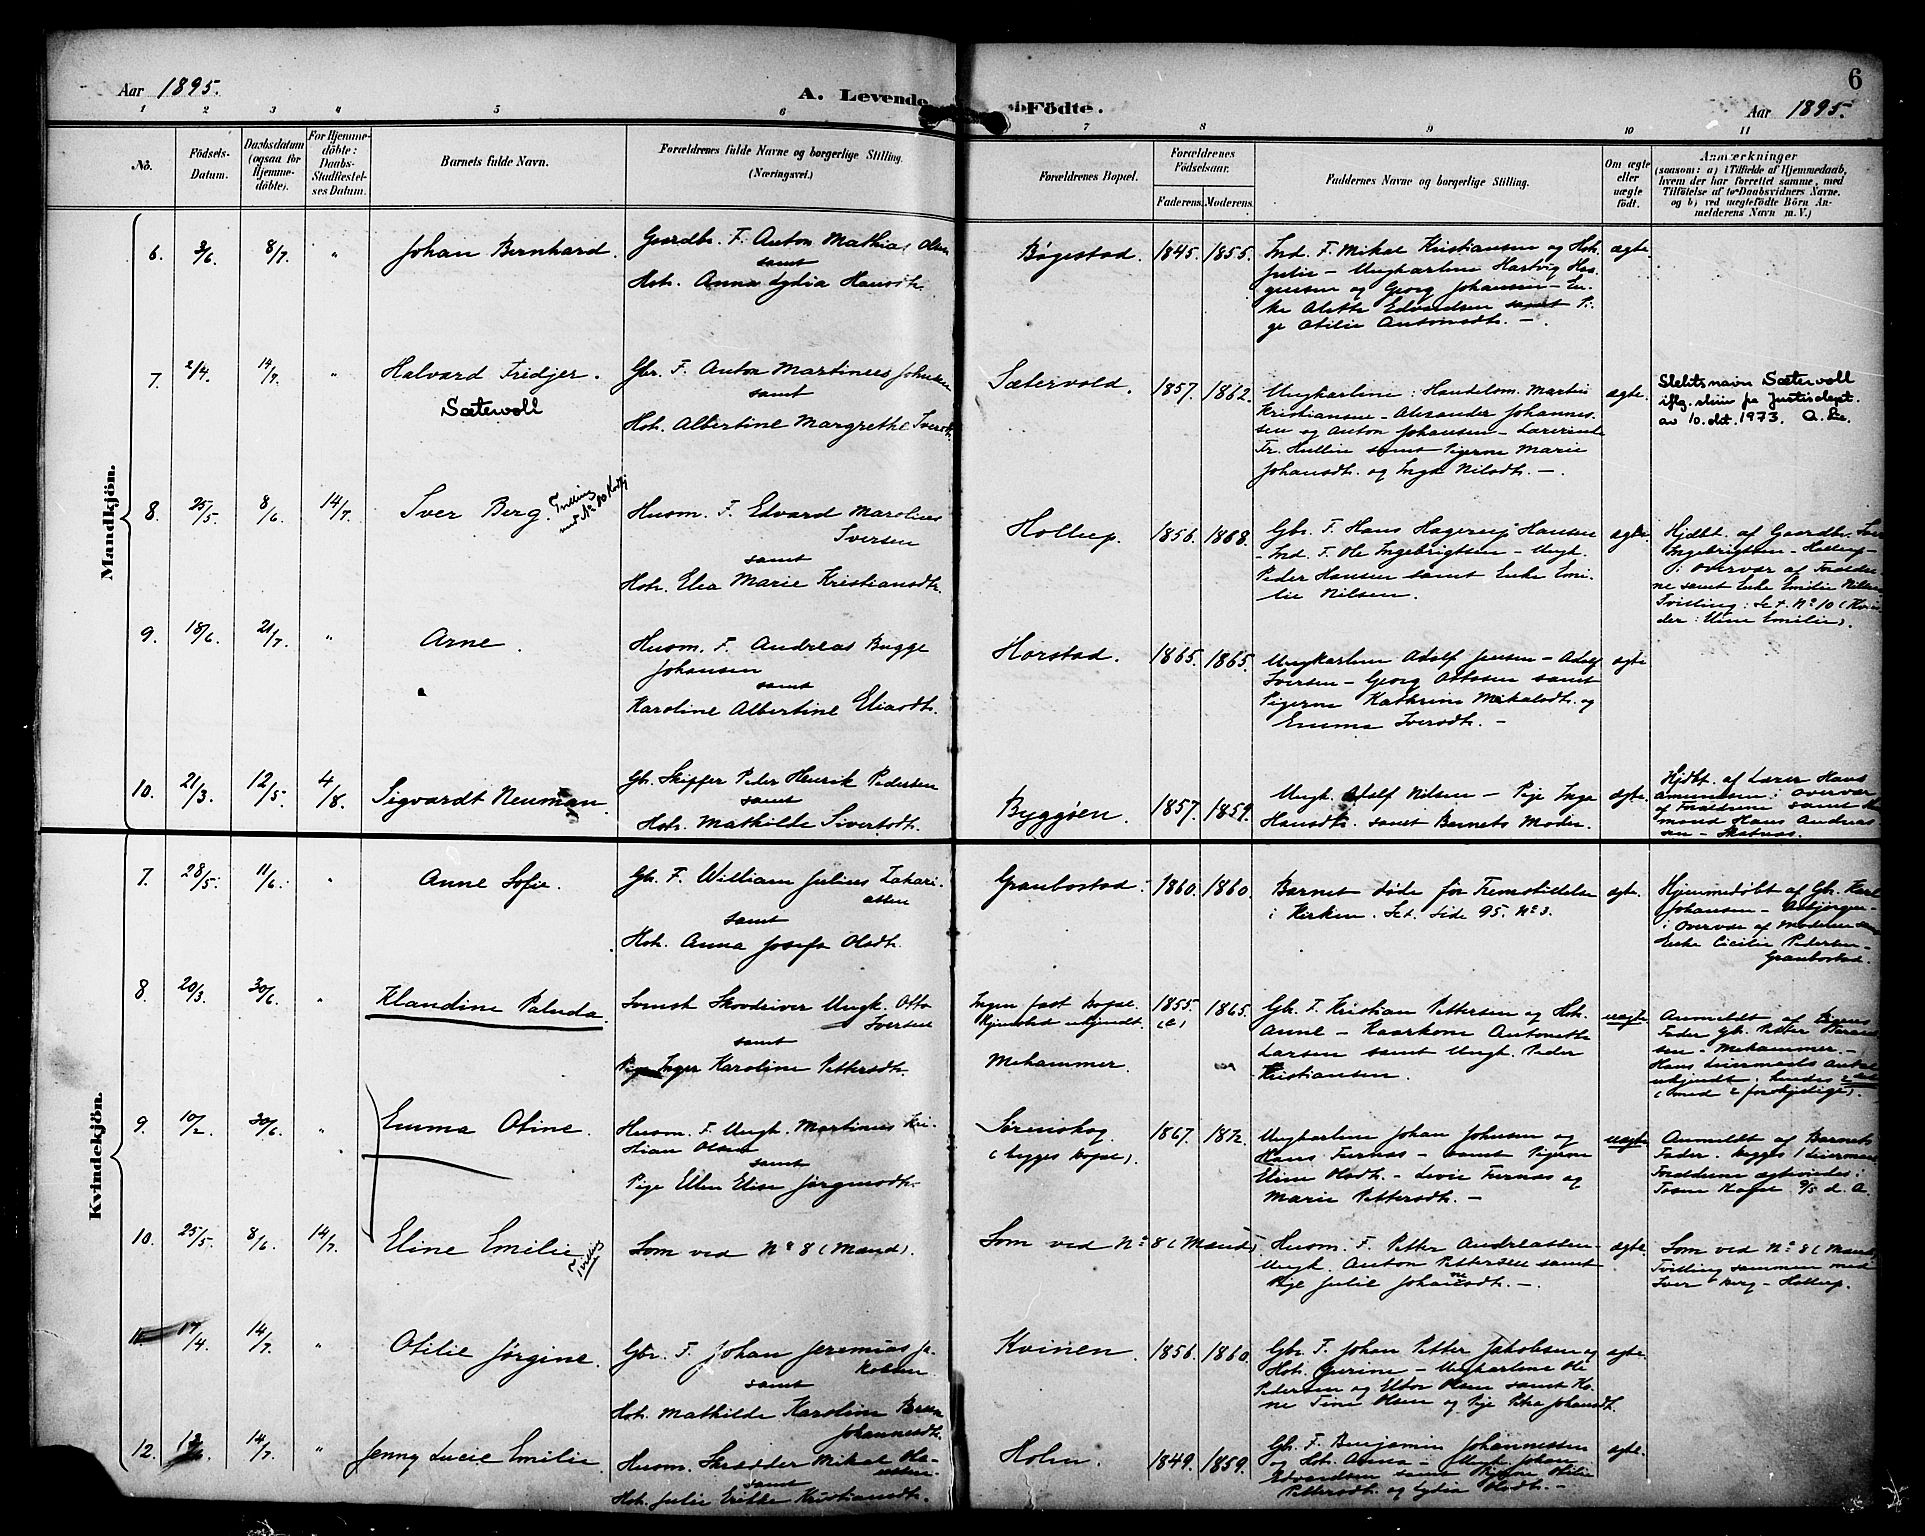 Aar 1895.
A. Levende
Födte.
Aar 1895.
6
1 2 3 4 5 6 7 8 9 10 11
No.
Födsels-Datum.
Daabsdatum (ogsaa for Hjemme-döbte).
For Hjemme-döbte: Daabs-Stadfæstel-ses Datum.
Barnets fulde Navn.
Forældrenes fulde Navne og borgerlige Stilling.
(Næringsvei.)
Forældrenes Bopæl.
Forældrenes Födselsaar.
Faderens. Moderens.
Faddernes Navne og borgerlige Stilling.
Om ægte eller uægte födt.
Anmærkninger
(saasom: a) i Tilfælde af Hjemmedaab,
hvem der har forrettet samme, med
Tilföielse af to Daabsvidners Navne,
og b) ved uegtefödte Börn An-
melderens Navn m. V.)
Mandkjön.
6. 3/6. 8/7. " Johan Bernhard. Gaardbr. F. Anton Mathias Olsen
samt
Hst. Anna Lydia Hansdtr.
Bøgestad. 1845. 1855.
Ind. F. Mikal Kristiansen og Hst.
Julie - Ungkarlene Hartvig Ha-
gensen og Georg Johansen - En-
ke Alette Edvardsen samt Pi-
ge Otilie Antonsdtr. -
ægte.
7. 2/4. 14/7. " Halvard Fridjer.
Sætervoll
Gbr. F. Anton Martinius Johnsen
samt
Hst. Albertine Margrethe Iversdtr.
Sætervold. 1857. 1862.
Ungkarlene: Handelsm. Martin
Kristiansen - Alexander Johannes-
sen og Anton Johansen - Lærerinde
Fr. Hullin samt Pigerne Marie
Johansdtr. og Inga Nilsdtr. -
ægte.
Slektsnavn Sætervoll
iflg. skriv fra Justisdept.
av 10. okt. 1973. A. Lie.
8. 25/5. 8/6. 14/7. Iver Berg. Tvilling med No 10 Kvkj
Husm. F. Edvard Marolius
Iversen
samt
Hst. Elea Marie Kristiansdtr.
Hollup. 1856. 1868.
Gbr. F. Hans Hagerup Hansen
- Ind. F. Ole Ingebrigtsen - Ungk.
Peder Hansen samt Enke Emi-
lie Nilsen.
ægte.
Hjdbt. af Gaardbr. Iver
Ingebrigtsen - Hollup -
i overvær af Foraldre-
ne samt Enke Emilie Nilsen
Tvilling: Se t. No 10 (Kvin-
der: Eline Emilie).
9. 18/6. 21/7. " Arne.
Husm. F. Andreas Bugge
Johansen
samt
Karoline Albertine Eliasdtr.
Horstad. 1865. 1865.
Ungkarlene Adolf Jensen - Adolf
Iversen - Georg Ottosen samt
Pigerne Kathrine Mikalsdtr. og
Emma Iversdtr. -
ægte
10. 21/3. 12/5. 4/8. Sigvardt Neuman.
Gbr. Skipper Peder Henrik Pedersen
samt
Hst. Mathilde Sivertsdtr.
Byggøen. 1857. 1859.
Ungk. Adolf Nilsen - Pige Inga
Hansdtr. samt Barnets Moder.
ægte.
Hjdbt. af Lærer Hans
Amundsen i overvær
af Foraldrene samt
Hans Andreas
sen -
Kvindekjön.
7. 28/5. 11/6. " Anne Sofie.
Gbr. F. William Julius Zakari-
assen
samt
Hst. Anna Josefa Olsdtr.
Graubostad. 1860. 1860.
Barnet døde før Fremstillelse
i Kirken. Se t. Side 95. No 3.
ægte.
Hjemmedøbt af Gbr. Karl
Johansen -
i Overvær af Moderen samt
Enke Cicilie Pedersen -
Graubostad.
8. 20/3. 30/6. " Klaudine Paluda.
Svensk Skovdriver Ungk. Otto
Iversen
samt
Pige Inger Karoline Pettersdtr.
Ingen fast Bopæl.
Hjemsted ubekjendt.
Mehammer.
1855. 1865.
(?)
Gbr. F. Kristian Pettersen og Hst.
Anne - Kaarkone Antonette
Larsen samt Ungk. Peder
Kristiansen.
uægte.
Anmeldt af Pigens
Fader Gbr. Petter
sen - Mehammer. -
Hans Leiermaals Antal
ubekjendt, hendes 2det
(med 2 forskjellige).
9. 10/2. 30/6. " Emma Otine.
Husm. F. Ungk. Martinus Kri-
stian Olsen
samt
Pige Ellen Elise Jørgensdtr.
Sørenskog
(begges Bopæl).
1867. 1872.
Ungkarlene Johan Johnsen og
Hans Fernæs - samt Pigerne
Eline Olsdtr. - Lovise Fernæs og
Marie Pettersdtr. -
uægte
Anmeldt af Barnets
Fader. Begges 1 Leiermaal
Foraldrene ægteviedes i
Tosen Kapel 9/5 d. A.
10. 25/5. 8/6. 14/7. Eline Emilie Tvilling
Som ved No 8 (Mænd).
Som ved No 8 (Mænd)
Husm. F. Petter Andreassen -
Ungk. Anton Pettersen samt
Pige Julie Johannesdtr. -
ægte.
Som ved No 8 (Mænd)
Tvilling sammen med
Iver Berg - Hollup.
11. 17/4. 14/7. " Otilie Jørgine.
Gbr. F. Johan Jeremias Ja-
kobsen
samt
Hst. Mathilde Karoline Brun
Johannesdtr.
Kvinen. 1856. 1860.
Gbr. F. Johan Petter Jakobsen og
Hst. Gurine - Ungkarlene Ole
Pedersen og Eltor Olsen samt Ko-
ne Tine Olsen og Pige Petra Johansdtr.
ægte.
12. 14/7. " Jenny Lucie Emilie.
Husm. Skrædder Mikal Ole-
samt
Hst. Julie Erikke Kristiansdtr.
Holm. 1849. 1859.
Gbr. F. Benjamin Johannessen
og Hst. Anna - Ungk. Johan
Edvardsen samt Pigerne Otilie
Pettersdtr. og Lydia Olsdtr. -
ægte.